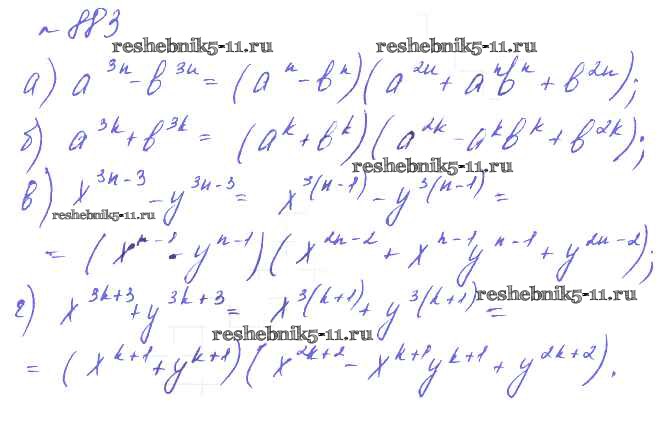 № 883
reshebnik5-11.ru reshebnik5-11.ru
а) a^{3n} - b^{3n} = (a^n - b^n)(a^{2n} + a^n b^n + b^{2n});
б) a^{3k} + b^{3k} = (a^k + b^k)(a^{2k} - a^k b^k + b^{2k});
reshebnik5-11.ru
в) x^{3n-3} - y^{3n-3} = x^{3(n-1)} - y^{3(n-1)} =
reshebnik5-11.ru
= (x^{n-1} - y^{n-1})(x^{2n-2} + x^{n-1} y^{n-1} + y^{2n-2});
г) x^{3k+3} + y^{3k+3} = x^{3(k+1)} + y^{3(k+1)} =
reshebnik5-11.ru
reshebnik5-11.ru
= (x^{k+1} + y^{k+1})(x^{2k+2} - x^{k+1} y^{k+1} + y^{2k+2}).